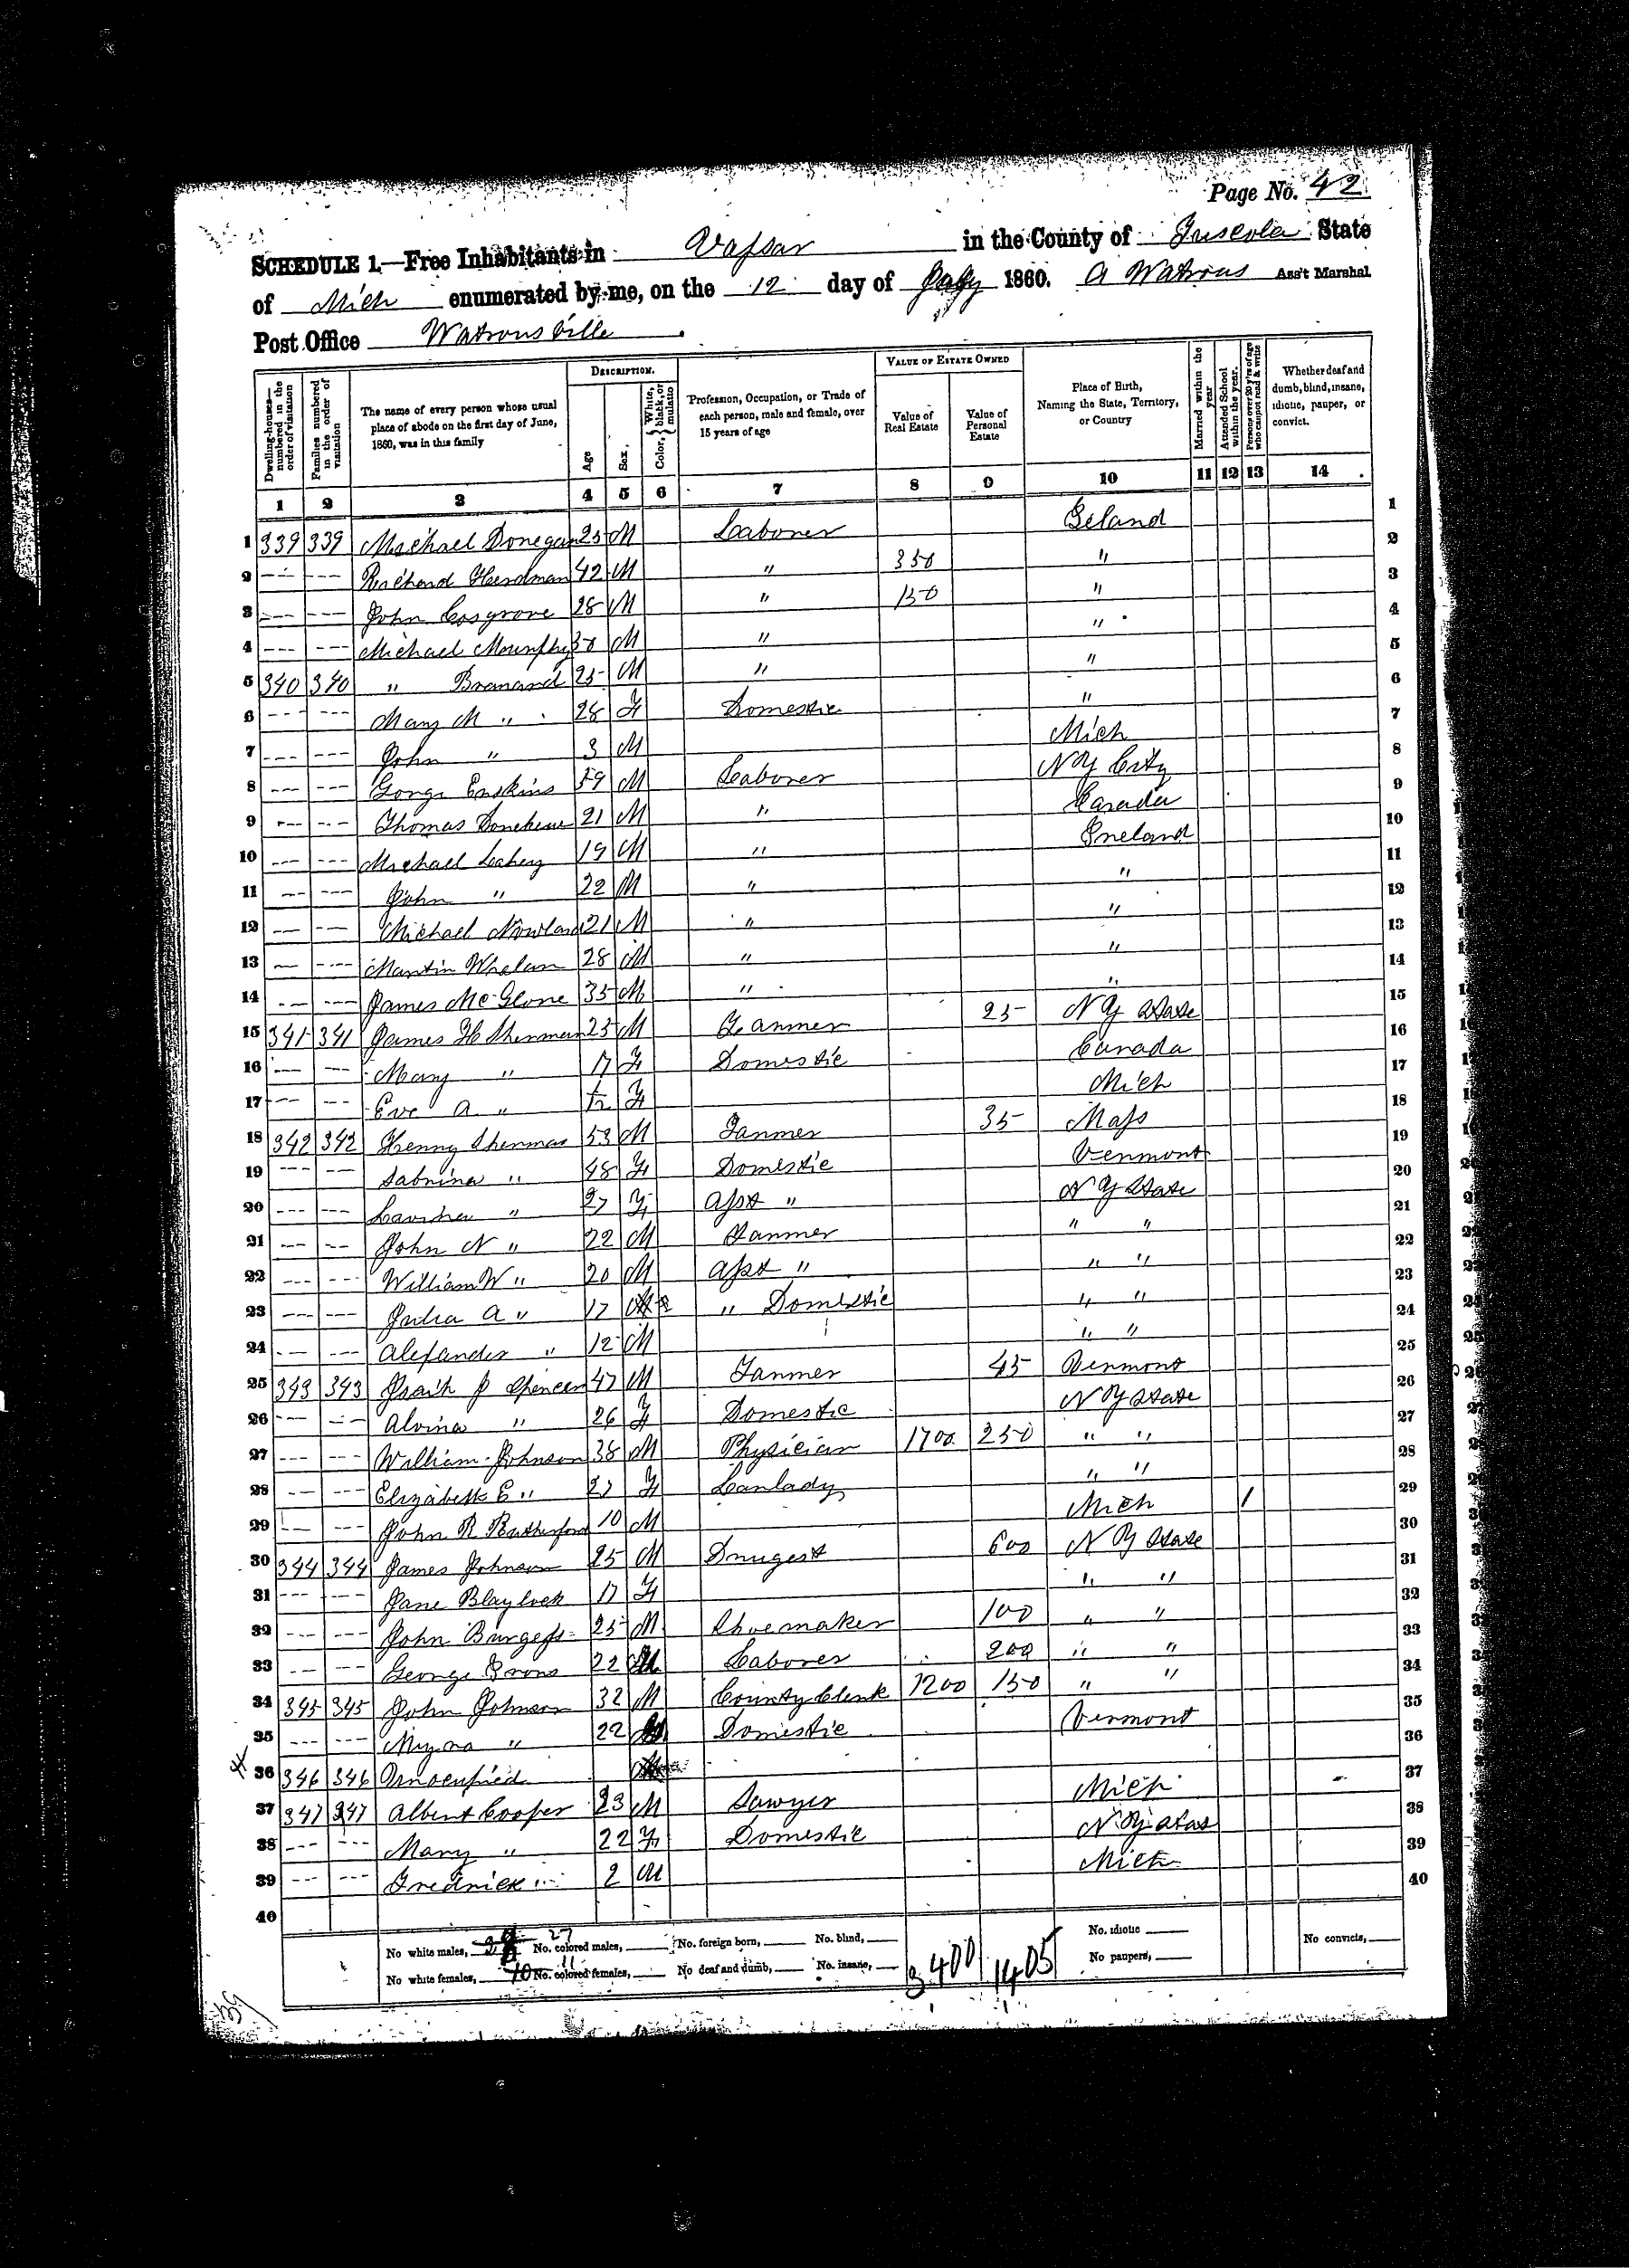 Page No. 42
SCHEDULE 1.—Free Inhabitants in Vassar in the County of Tuscola State
of Mich enumerated by me, on the 12 day of July 1860. A Watrous Ass't Marshal
Post Office Watrousville
DESCRIPTION. VALUE OF ESTATE OWNED
Dwelling-houses—numbered in the order of visitation Families numbered in the order of visitation The name of every person whose usual place of abode on the first day of June, 1860, was in this family Age Sex Color, White, black, or mulatto Profession, Occupation, or Trade of each person, male and female, over 15 years of age Value of Real Estate Value of Personal Estate Place of Birth, Naming the State, Territory, or Country Married within the year Attended School within the year. Persons over 20 y'rs of age who cannot read & write Whether deaf and dumb, blind, insane, idiotic, pauper, or convict.
1 2 3 4 5 6 7 8 9 10 11 12 13 14
1 339 339 Michael Donegan 25 M Laborer Ireland 1
2 --- --- Richard Hurdman 42 M " 350 " 2
3 --- --- John Cosgrove 28 M " 150 " 3
4 --- --- Michael Mourphy 30 M " " 4
5 340 340 " Branand 25 M " " 5
6 --- --- Mary M " 28 F Domestic " 6
7 --- --- John " 3 M Mich 7
8 --- --- Gorge Erskins 59 M Laborer N Y City 8
9 --- --- Thomas 21 M " Canada 9
10 --- --- Michael Leahey 19 M " Ireland 10
11 --- --- John " 22 M " " 11
12 --- --- Michael Nowland 21 M " " 12
13 --- --- Martin Whelan 28 M " " 13
14 --- --- James McGlone 35 M " " 14
15 341 341 James H Sherman 23 M Farmer 25 N Y State 15
16 --- --- Mary " 17 F Domestic Canada 16
17 --- --- Eve A " F Mich 17
18 342 342 Henry Sherman 53 M Farmer 35 Mass 18
19 --- --- Sabrina " 48 F Domestic Vermont 19
20 --- --- Lavina " 27 F Asst " N Y State 20
21 --- --- John N " 22 M Farmer " " 21
22 --- --- William W " 20 M Asst " " " 22
23 --- --- Julia A " 17 " Domestic " " 23
24 --- --- Alexander " 12 M " " 24
25 343 343 Isaih J Spencer 47 M Farmer 45 Vermont 25
26 --- --- Alvina " 26 F Domestic N Y State 26
27 --- --- William Johnson 38 M Physician 1700 250 " " 27
28 --- --- Elizabeth E " 27 F Lanlady " " 28
29 --- --- John R Rutherford 10 M Mich / 29
30 344 344 James Johnson 25 M Drugest 600 N Y State 30
31 --- --- Jane Blaylock 17 F " " 31
32 --- --- John Burgess 25 M Shoemaker 100 " " 32
33 --- --- George Irons 22 M Laborer 200 " " 33
34 345 345 John Johnson 32 M County Clerk 1200 150 " " 34
35 --- --- Myra " 22 Domestic Vermont 35
36 346 346 Unocupied 36
37 347 347 Albert Cooper 23 M Sawyer Mich 37
38 --- --- Mary " 22 F Domestic N Y State 38
39 --- --- Fredrick " 2 M Mich 39
40 40
No white males, 27 No. colored males, No. foreign born, No. blind, No. idiotic No convicts,
No white females, 10 11 No. colored females, No deaf and dumb, No. insane, 3400 1405 No paupers,
39